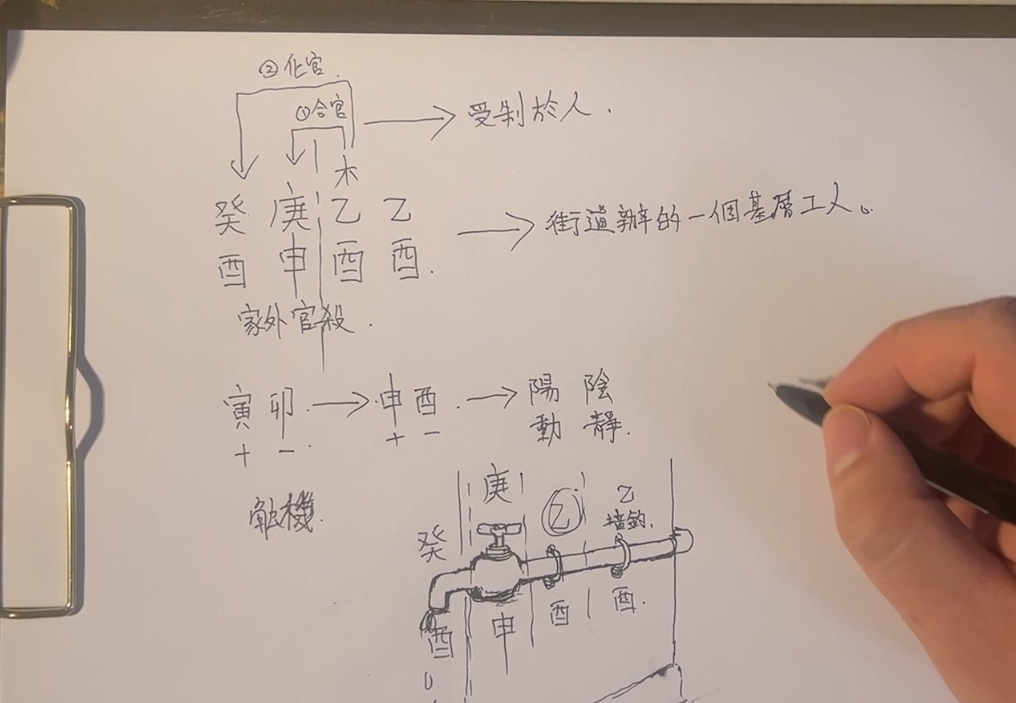 ②化官.
①合官
受制於人.
木
癸 庚 乙 乙
酉 申 酉 酉.
街道辦的一個基層工人。
家外官殺.
寅 卯. 申酉. 陽 陰
+ - . + - 動 靜.
機.
庚
乙
乙
墻鉤.
癸
酉 申 酉 酉.